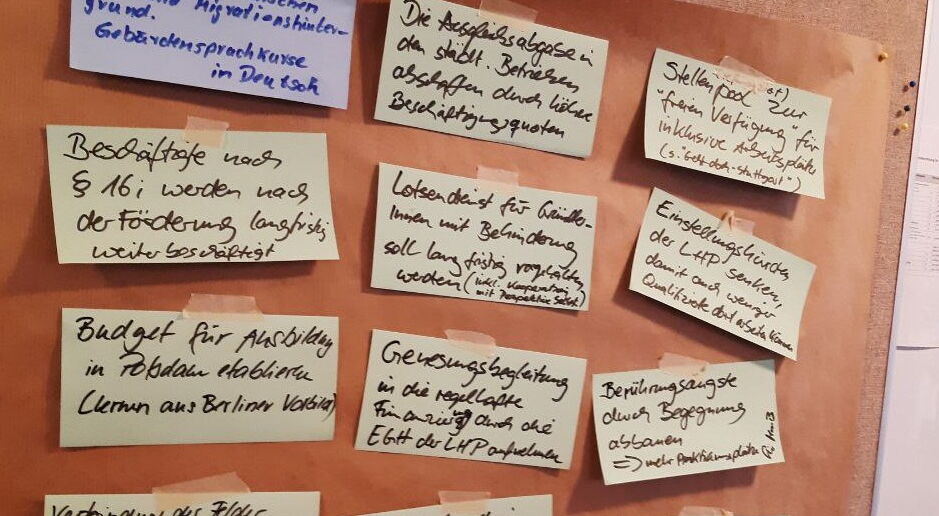 grund.
Migrationshinter-
Gebärdensprachkurse
in Deutsch
Die Ausgleichsabgabe in
den städt. Betrieben
abschaffen durch höhere
Beschäftigungsquoten
Stellenpool
zur
"freien Verfügung" für
inklusive Arbeitsplätze
Beschäftigte nach
§ 16i werden nach
der Förderung langfristig
weiterbeschäftigt
Lotsendienst für Gründer-
Innen mit Behinderung
soll langfristig vorgehalten
werden (inkl. Kooperation
mit Perspektive Selbst.)
Einstellungshürden
der LHP senken,
damit auch weniger
Qualifizierte dort arbeiten können
Budget für Ausbildung
in Potsdam etablieren
(lernen aus Berliner Vorbild)
Genesungsbegleitung
in die regelhafte
Finanzierung durch die
EGH der LHP aufnehmen
Berührungsängste
durch Begegnung
abbauen
=> mehr Praktikumsplätze
Verbindung der Felder